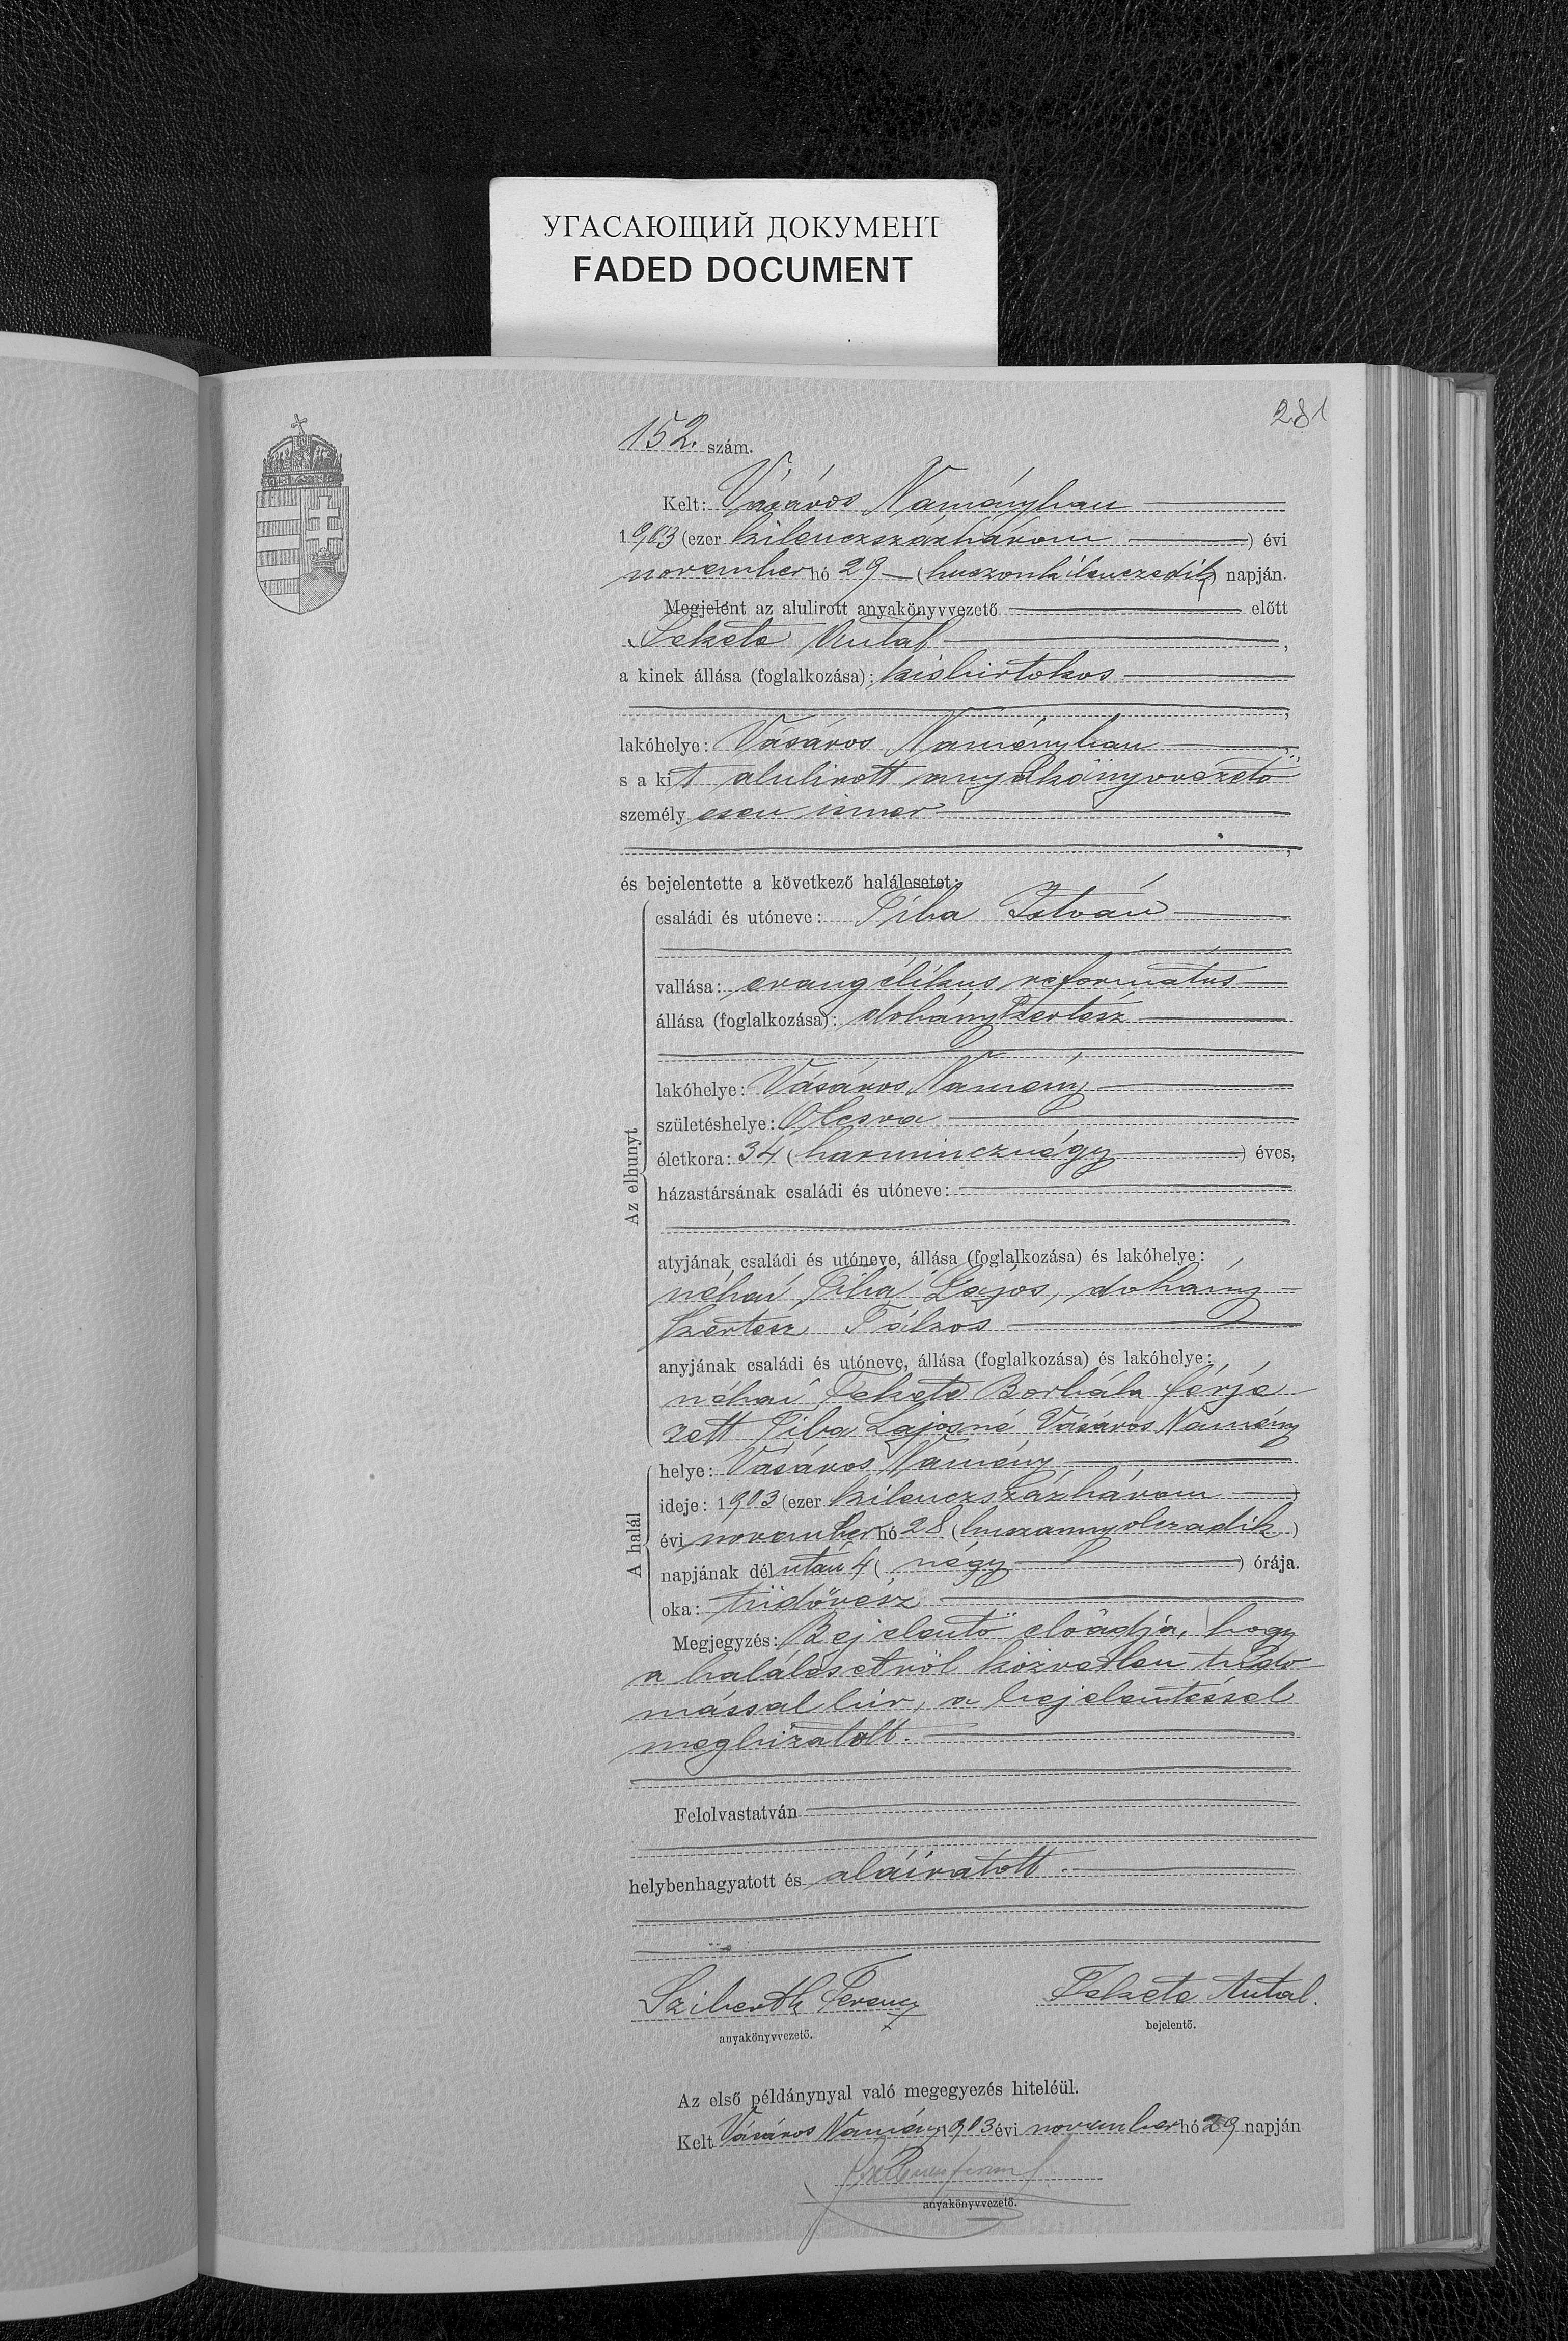 УГАСАЮЩИЙ ДОКУМЕНТ
FADED DOCUMENT
281
152. szám.
Kelt: Vásáros Naményban
1903 (ezer kilenczszázhárom) évi
november hó 29 (huszonkilenczedik) napján.
Megjelent az alulirott anyakönyvvezető előtt
Fekete Antal,
a kinek állása (foglalkozása): kisbirtokos
,
lakóhelye: Vásáros Naményban,
s a kit alulirott anyakönyvvezető
személyesen ismer
,
és bejelentette a következő halálesetet:
Az elhunyt
családi és utóneve: Tiba István
vallása: evangélikus református
állása (foglalkozása): dohánykertész
lakóhelye: Vásáros Namény
születéshelye: Olcsva
életkora: 34 (harmincznégy) éves,
házastársának családi és utóneve:
atyjának családi és utóneve, állása (foglalkozása) és lakóhelye:
néhai Tiba Lajos, dohány-
kertész Tákos
anyjának családi és utóneve, állása (foglalkozása) és lakóhelye:
néhai Fekete Borbála férje
zett Tiba Lajosné Vásáros Namény
A halál
helye: Vásáros Namény
ideje: 1903 (ezer kilenczszázhárom)
évi november hó 28 (huszonnyolczadik)
napjának délután 4 (négy) órája.
oka: tüdővész
Megjegyzés: Bejelentő előadja, hogy
a halálesetről közvetlen tudo
mással bir, a bejelentéssel
megbizatott.
Felolvastatván
helybenhagyatott és aláíratott.
Sziberth Ferencz
anyakönyvvezető.
Fekete Antal.
bejelentő.
Az első példánynyal való megegyezés hiteléül.
Kelt Vásáros Namény 1903 évi november hó 29 napján
anyakönyvvezető.